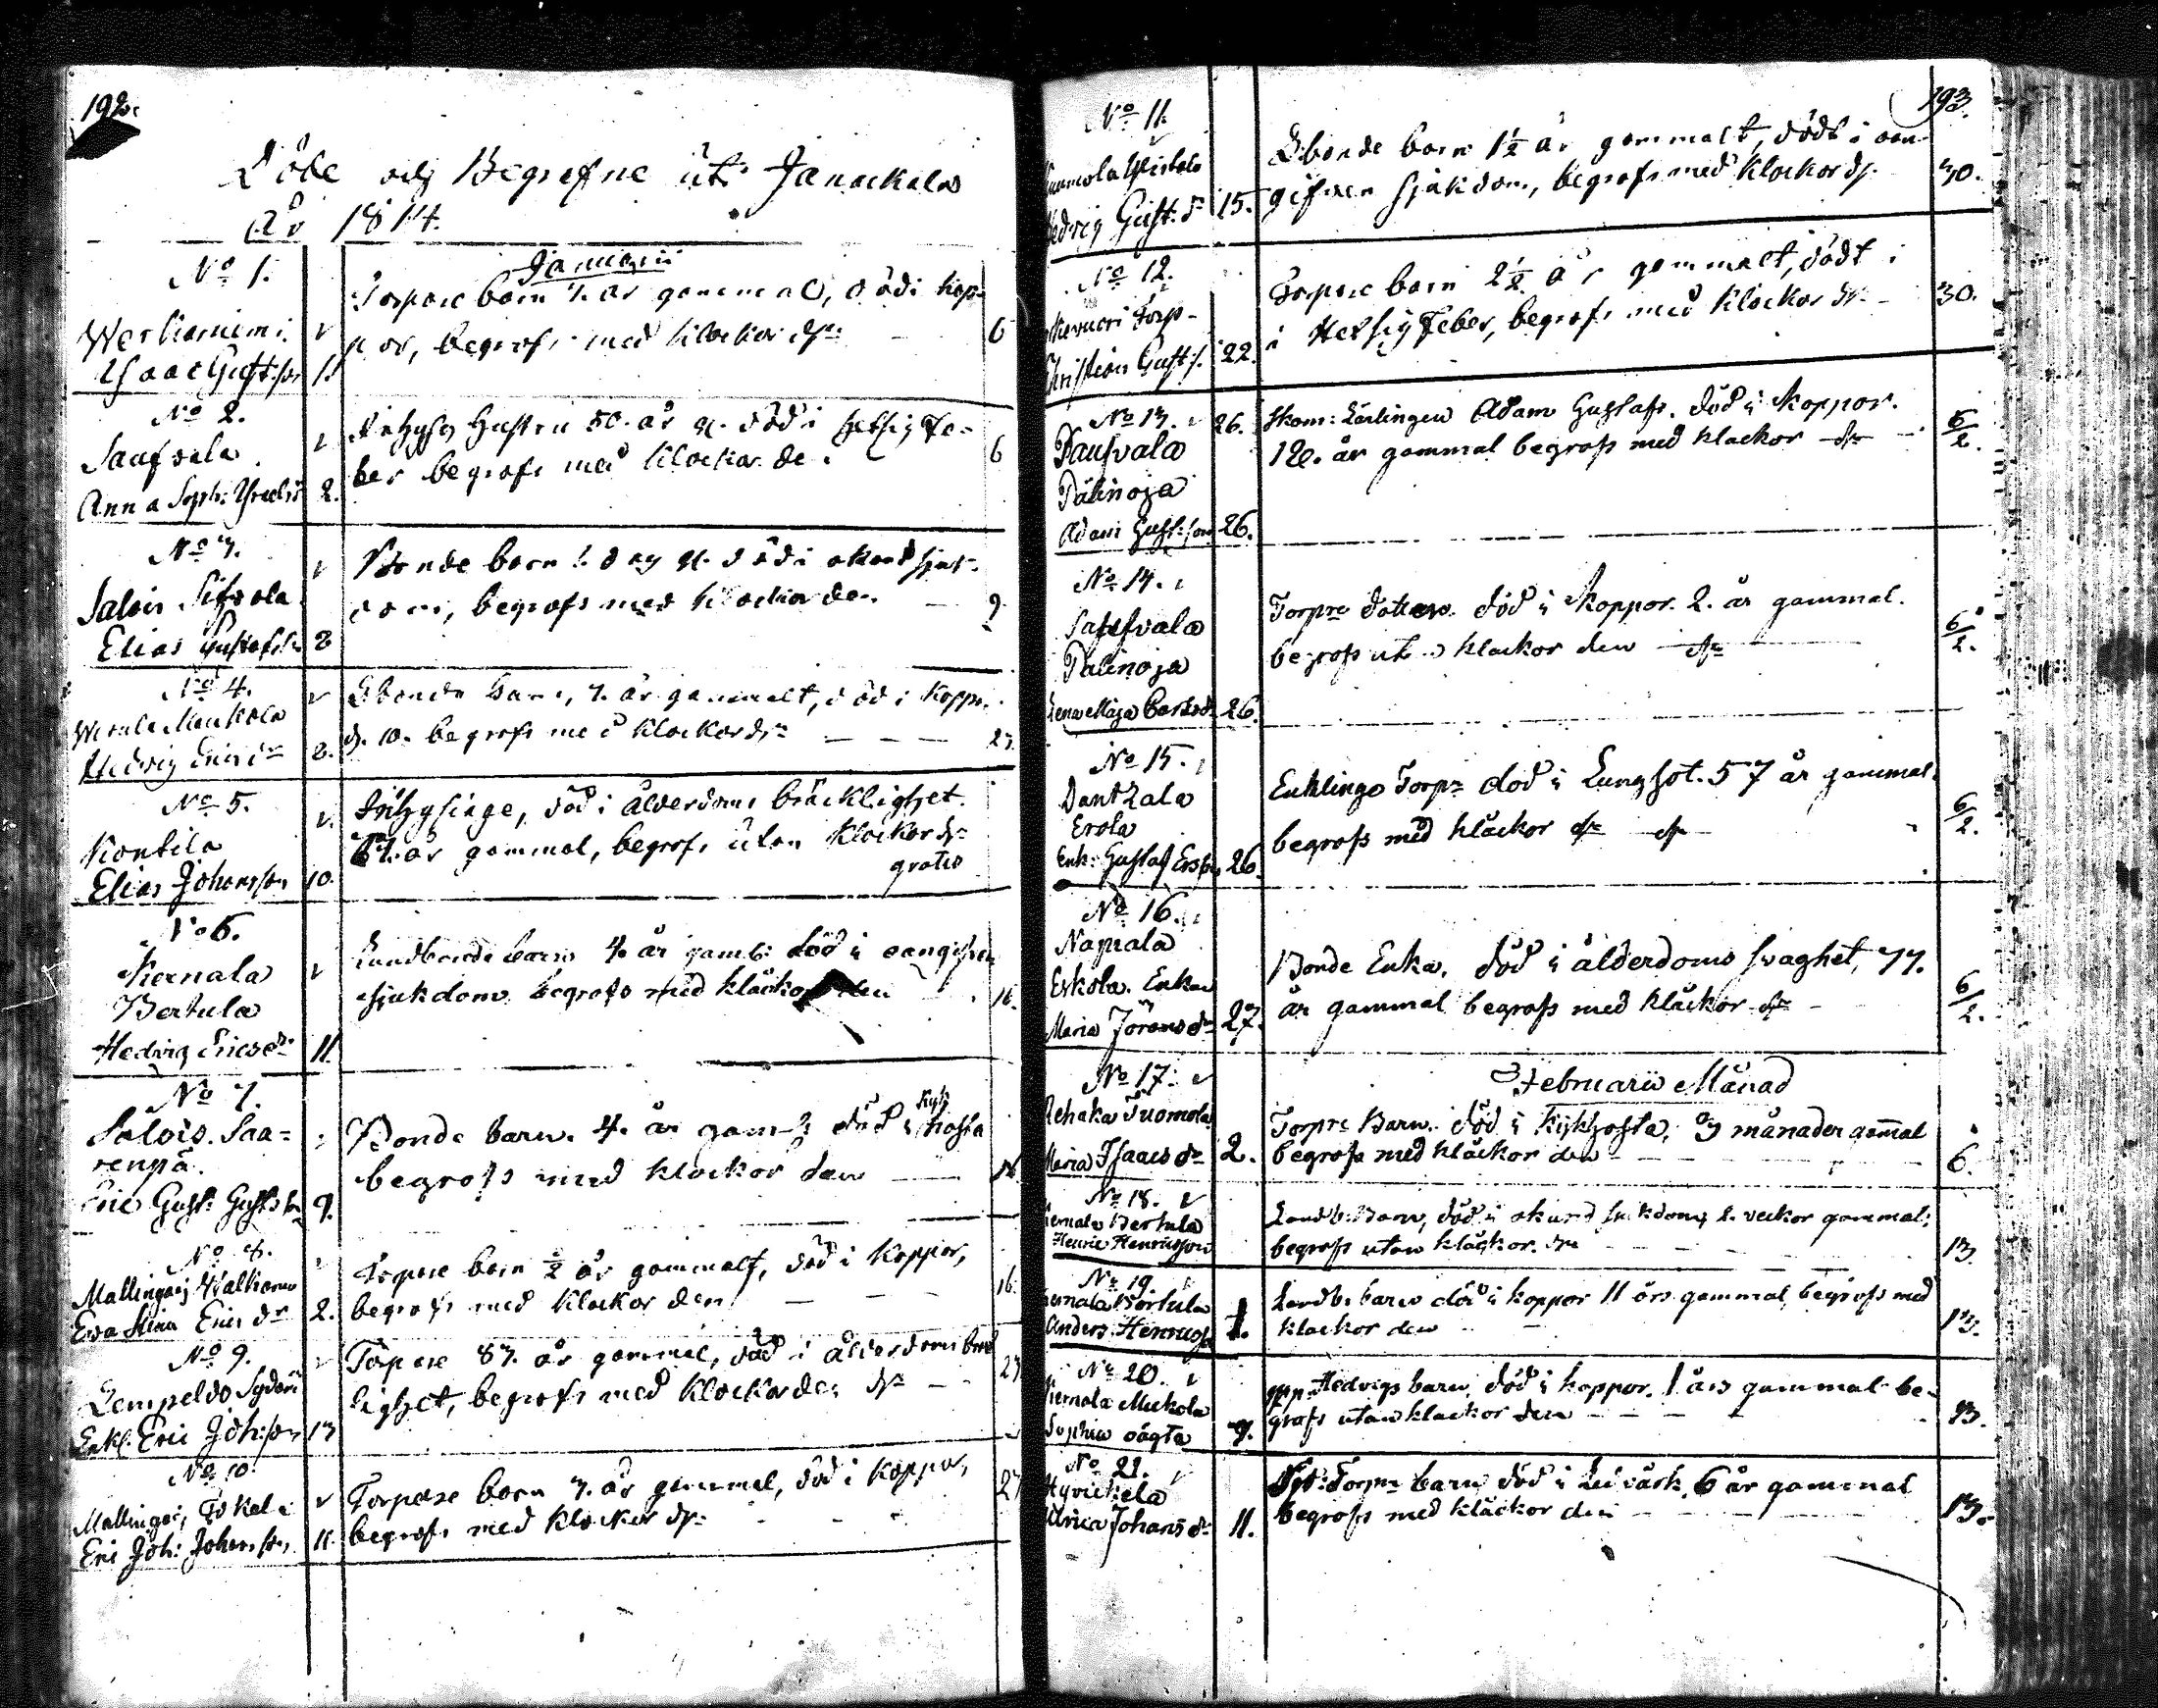 192.
Döde och Begrafne uti Janackala
År 1814.
Januarii
No 1.
Isaac Gust:son 1.
Torpare barn 7. år gammal, död i kop-
por, begrofs med klockor dn 6
No 2.
Saufvala
Anna Soph: 2.
Hustru 50. år g. död i Hetsig Fe-
ber begrofs med klockor de. 6
No 3.
Salois Sifvola
Elias Gustafs:n 8
Bonde barn 1. dag g. död i okend sjuk-
dom, begrofs med klockor den 9
No 4.
Hedvig Erics dr 8.
Bonde barn, 7. år gammalt, död i koppor
d. 10. begrofs med klockor dn 23
No 5.
Kontila
Elias Johansson 10.
Inhysinge, död i ålderdoms bräcklighet.
år gammal, begrofs utan klockor dn
gratis
No 6.
Kernala
Bertula
Hedvig Erics dr 11.
Landbonde barn 4 år gamb: död i oangifven
sjukdom. begrofs med klåckor den 16.
No 7.
Salois. Saa=
renpä.
Eric Gust: Gusts:n 9.
Bonde barn. 4. år gam-l död i kyk hosta
begrofs med klockor den 16
No 8.
Mallingaij
Eva Stina Erics dr 2.
Torpare barn ½ år gammalt, död i koppor,
begrofs med klockor den 16
No 9.
Lempeldo
Enkl. Eric Joh:son 13
Torpare 83. år gammal, död i ålderdoms bräck
lighet, begrofs med klockor den dn 23
No 10.
Mallingai,
Eric Joh: Johansson 11.
Torpare barn 7. år gammal, död i koppor,
begrofs med klockor dn 23
193.
No 11.
Hedvig Gust: dr 15.
Bonde barn 1½ år gammalt, dödt i oan-
gifven sjukdom, begrofs med klockor dn 30.
No 12.
Torp-
Christian Gust:s. 22.
Torpare barn 2½ år gammalt, dödt i
i Hetsig Feber, begrofs med klockor dn 30.
No 13. 26.
Saufvala
Palinoja
Adam Gust:son 26.
Skom: Lärlingen Adam Gustafs. död i koppor.
18. år gammal begrofs med klockor dn 6/2.
No 14.
Saufvala
Palinoja
Lena Maja Carls dr 26.
Torpre dotter. död i Koppor. 2. år gammal.
begrofs utan klockor den dn 6/2.
No 15.
Dantzala
Erola
Enk: Gustaf Ersson 26.
Enklinge Torpr död i Lungsot. 57 år gammal.
begrofs med klåckor dn dn 6/2.
No 16.
Napiala
Eskola. Enkan
Maria Jörans dr 27.
Bonde Enka. död i ålderdoms svaghet, 77.
år gammal begrofs med klåckor dn 6/2.
Februarii Månad
No 17.
Rehaka Tuomola
Maria Isaacs dr 2.
Torpre Barn. död i Kykhosta, 3 månader gammal
begrofs med klåckor den 6.
No 18.
Kernala Bertula
Henric Henricsson
Landb: Barn, död i okund sjukdom, 2. veckor gammal;
begrofs utan klåckor. dn 13.
No 19.
Kernala Bertula
Anders Henricss: 7.
Landb: barn död i koppor 11 års gammal, begrofs med
klockor den 13.
No 20.
Kernala Muckola
Sophia oägta 9.
Hedvigs barn, död i koppor. 1 års gammal be-
grofs utan klockor den 13.
No 21.
Hyvickela
Ulrica Johans dr 11.
Torpr barn död i Led värk. 6 år gammal
begrofs med klåckor den 13.